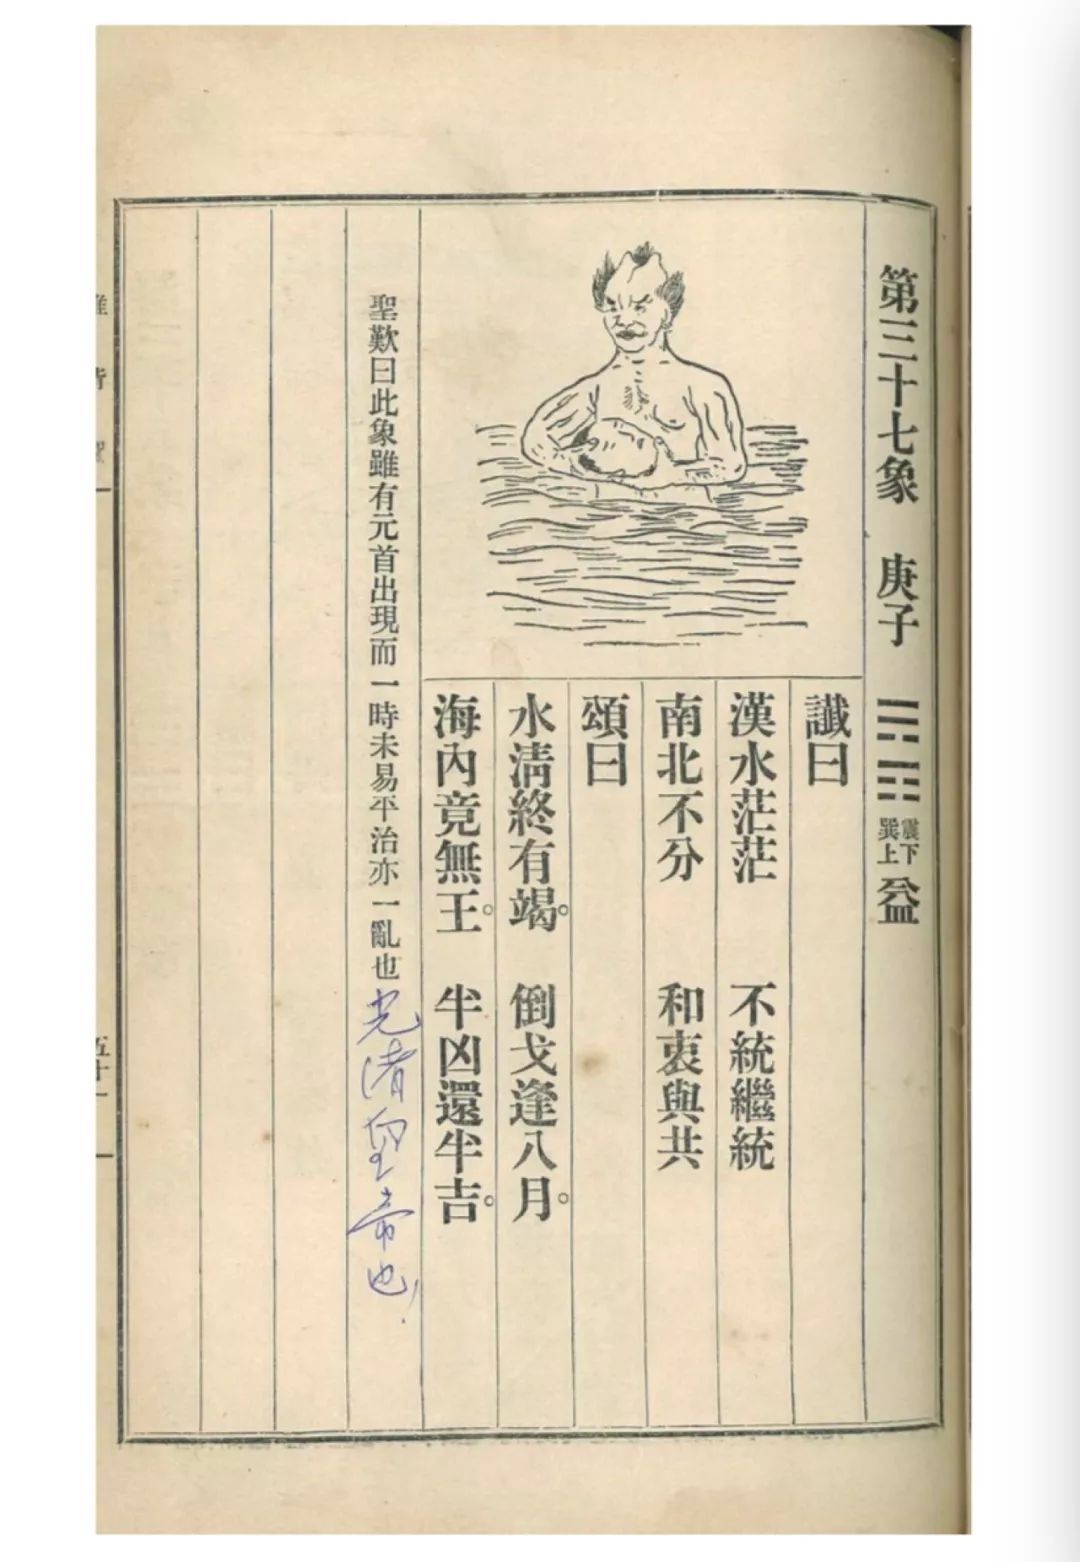 第三十七象 庚子 震下巽上 益
讖曰
漢水茫茫 不統繼統
南北不分 和衷與共
頌曰
水清終有竭。倒戈逢八月。
海內竟無王。半凶還半吉。
聖歎曰此象雖有元首出現而一時未易平治亦一亂也
光渚皇帝也
五十一